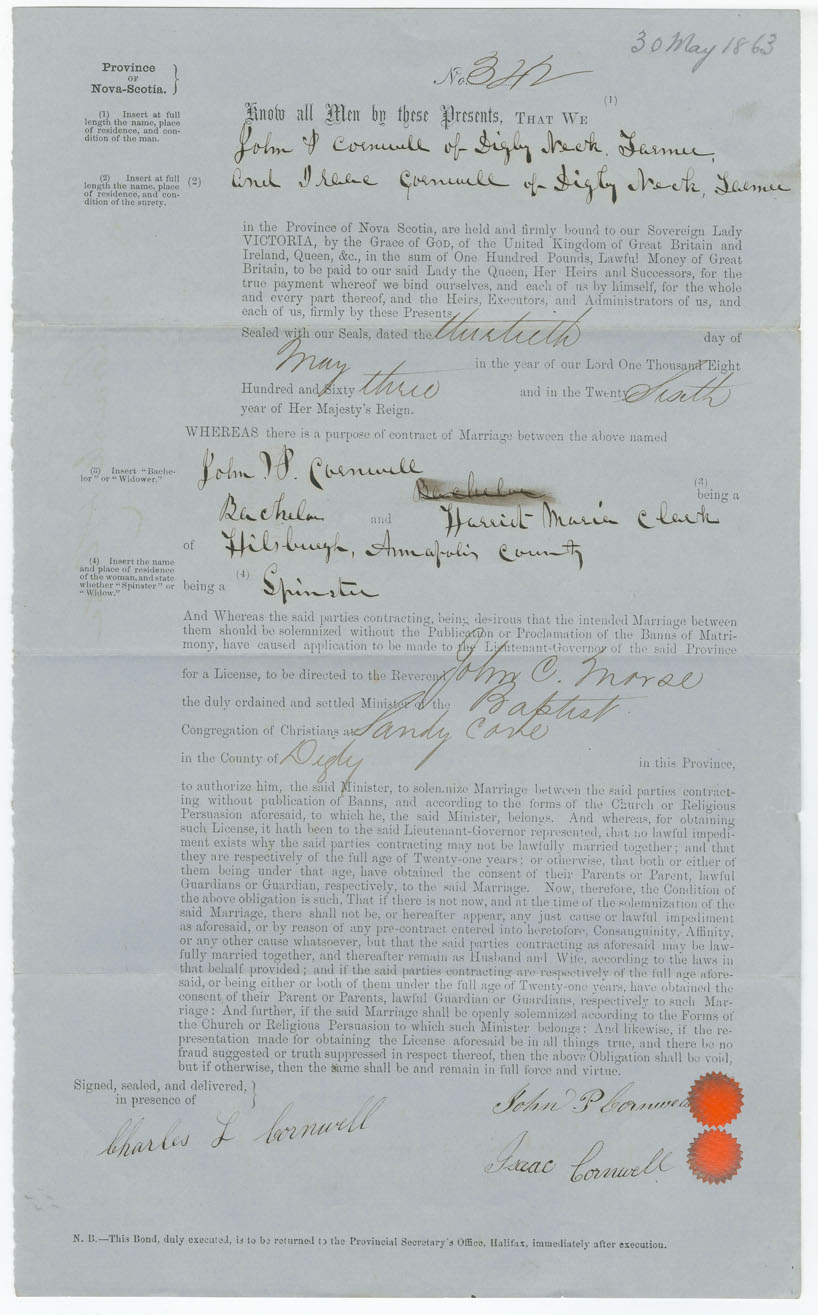 30 May 1863
Province
OF
Nova-Scotia.
No. 342
(1) Insert at full
length the name, place
of residence, and con-
dition of the man.
Know all Men by these Presents, THAT WE (1)
John P Cornwell of Digby Neck. Farmer,
(2) Insert at full
length the name, place
of residence, and con-
dition of the surety.
(2) and Isaac Cornwell of Digby Neck, Farmer
in the Province of Nova Scotia, are held and firmly bound to our Sovereign Lady
VICTORIA, by the Grace of GOD, of the United Kingdom of Great Britain and
Ireland, Queen, &c., in the sum of One Hundred Pounds, Lawful Money of Great
Britain, to be paid to our said Lady the Queen, Her Heirs and Successors, for the
true payment whereof we bind ourselves, and each of us by himself, for the whole
and every part thereof, and the Heirs, Executors, and Administrators of us, and
each of us, firmly by these Presents
Sealed with our Seals, dated the thirtieth day of
May in the year of our Lord One Thousand Eight
Hundred and Sixty three and in the Twenty Sixth
year of Her Majesty's Reign.
WHEREAS there is a purpose of contract of Marriage between the above named
(3) Insert "Bache-
lor" or "Widower."
John P. Cornwell
Bachelor (3) being a
Bachelor and Harriet Maria Clark
of Hilsburgh, Annapolis County
(4) Insert the name
and place of residence
of the woman, and state
whether "Spinster" or
"Widow."
being a (4) Spinster
And Whereas the said parties contracting, being desirous that the intended Marriage between
them should be solemnized without the Publication or Proclamation of the Banns of Matri-
mony, have caused application to be made to the Lieutenant-Governor of the said Province
for a License, to be directed to the Reverend John C. Morse
the duly ordained and settled Minister of the Baptist
Congregation of Christians at Sandy Cove
in the County of Digby in this Province,
to authorize him, the said Minister, to solemnize Marriage between the said parties contract-
ing without publication of Banns, and according to the forms of the Church or Religious
Persuasion aforesaid, to which he, the said Minister, belongs. And whereas, for obtaining
such License, it hath been to the said Lieutenant-Governor represented, that no lawful impedi-
ment exists why the said parties contracting may not be lawfully married together; and that
they are respectively of the full age of Twenty-one years; or otherwise, that both or either of
them being under that age, have obtained the consent of their Parents or Parent, lawful
Guardians or Guardian, respectively, to the said Marriage. Now, therefore, the Condition of
the above obligation is such, That if there is not now, and at the time of the solemnization of the
said Marriage, there shall not be, or hereafter appear, any just cause or lawful impediment
as aforesaid, or by reason of any pre-contract entered into heretofore, Consanguinity, Affinity,
or any other cause whatsoever, but that the said parties contracting as aforesaid may be law-
fully married together, and thereafter remain as Husband and Wife, according to the laws in
that behalf provided; and if the said parties contracting are respectively of the full age afore-
said, or being either or both of them under the full age of Twenty-one years, have obtained the
consent of their Parent or Parents, lawful Guardian or Guardians, respectively to such Mar-
riage: And further, if the said Marriage shall be openly solemnized according to the Forms of
the Church or Religious Persuasion to which such Minister belongs: And likewise, if the re-
presentation made for obtaining the License aforesaid be in all things true, and there be no
fraud suggested or truth suppressed in respect thereof, then the above Obligation shall be void,
but if otherwise, then the same shall be and remain in full force and virtue.
Signed, sealed, and delivered,
in presence of
John P Cornwell
Charles L Cornwell
Isaac Cornwell
N. B.—This Bond, duly executed, is to be returned to the Provincial Secretary's Office, Halifax, immediately after execution.